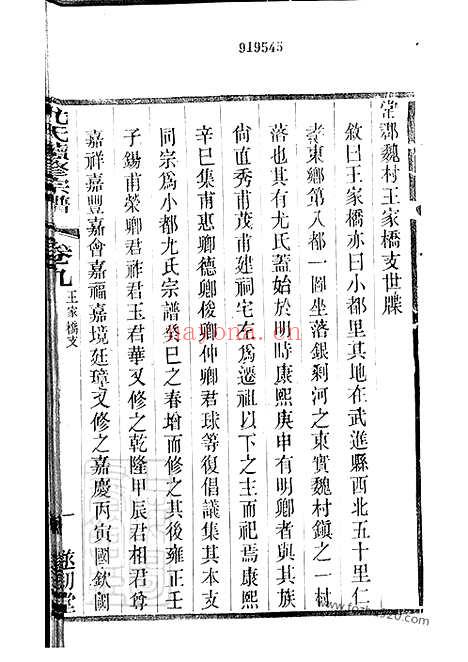 919545
常郡魏村王家橋支世牒
敘曰王家橋亦曰小都里其地在武進縣西北五十里仁
孝東鄉第八都一圖坐落銀剩河之東實魏村鎮之一村
落也其有尤氏蓋始於明時康熙庚申有明卿者與其族
尙直秀甫茂甫建祠宅左為遷祖以下之主而祀焉康熙
辛巳集甫惠卿德卿俊卿仲卿君球等復倡議集其本支
同宗為小都尤氏宗譜癸巳之春增而修之其後雍正壬
子錫甫榮卿君祚君玉君華又修之乾隆甲辰君相君尊
嘉祥嘉豐嘉會嘉福嘉境廷璋又修之嘉慶丙寅國欽國
尤氏
宗譜
卷九
王家橋支
一
遂初堂
nayona.cn
www.fozhu920.com